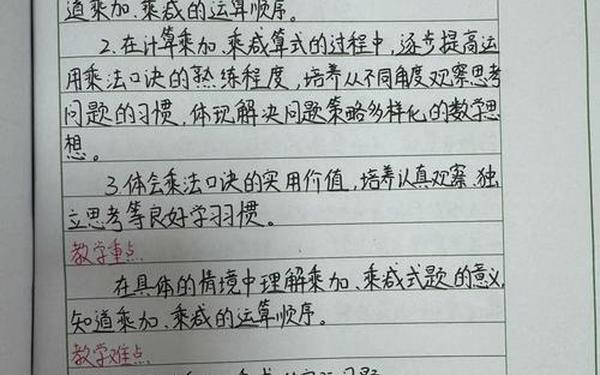 道乘加、乘减的运算顺序。
2.在计算乘加、乘减算式的过程中,逐步提高运
用乘法口诀的熟练程度,培养从不同角度观察思考
问题的习惯,体现解决问题策略多样化的数学思
想。
3.体会乘法口诀的实用价值,培养认真观察、独
立思考等良好学习习惯。
教学重点
在具体的情境中理解乘加、乘减式题的意义,
知道乘加、乘减的运算顺序。
教学难点